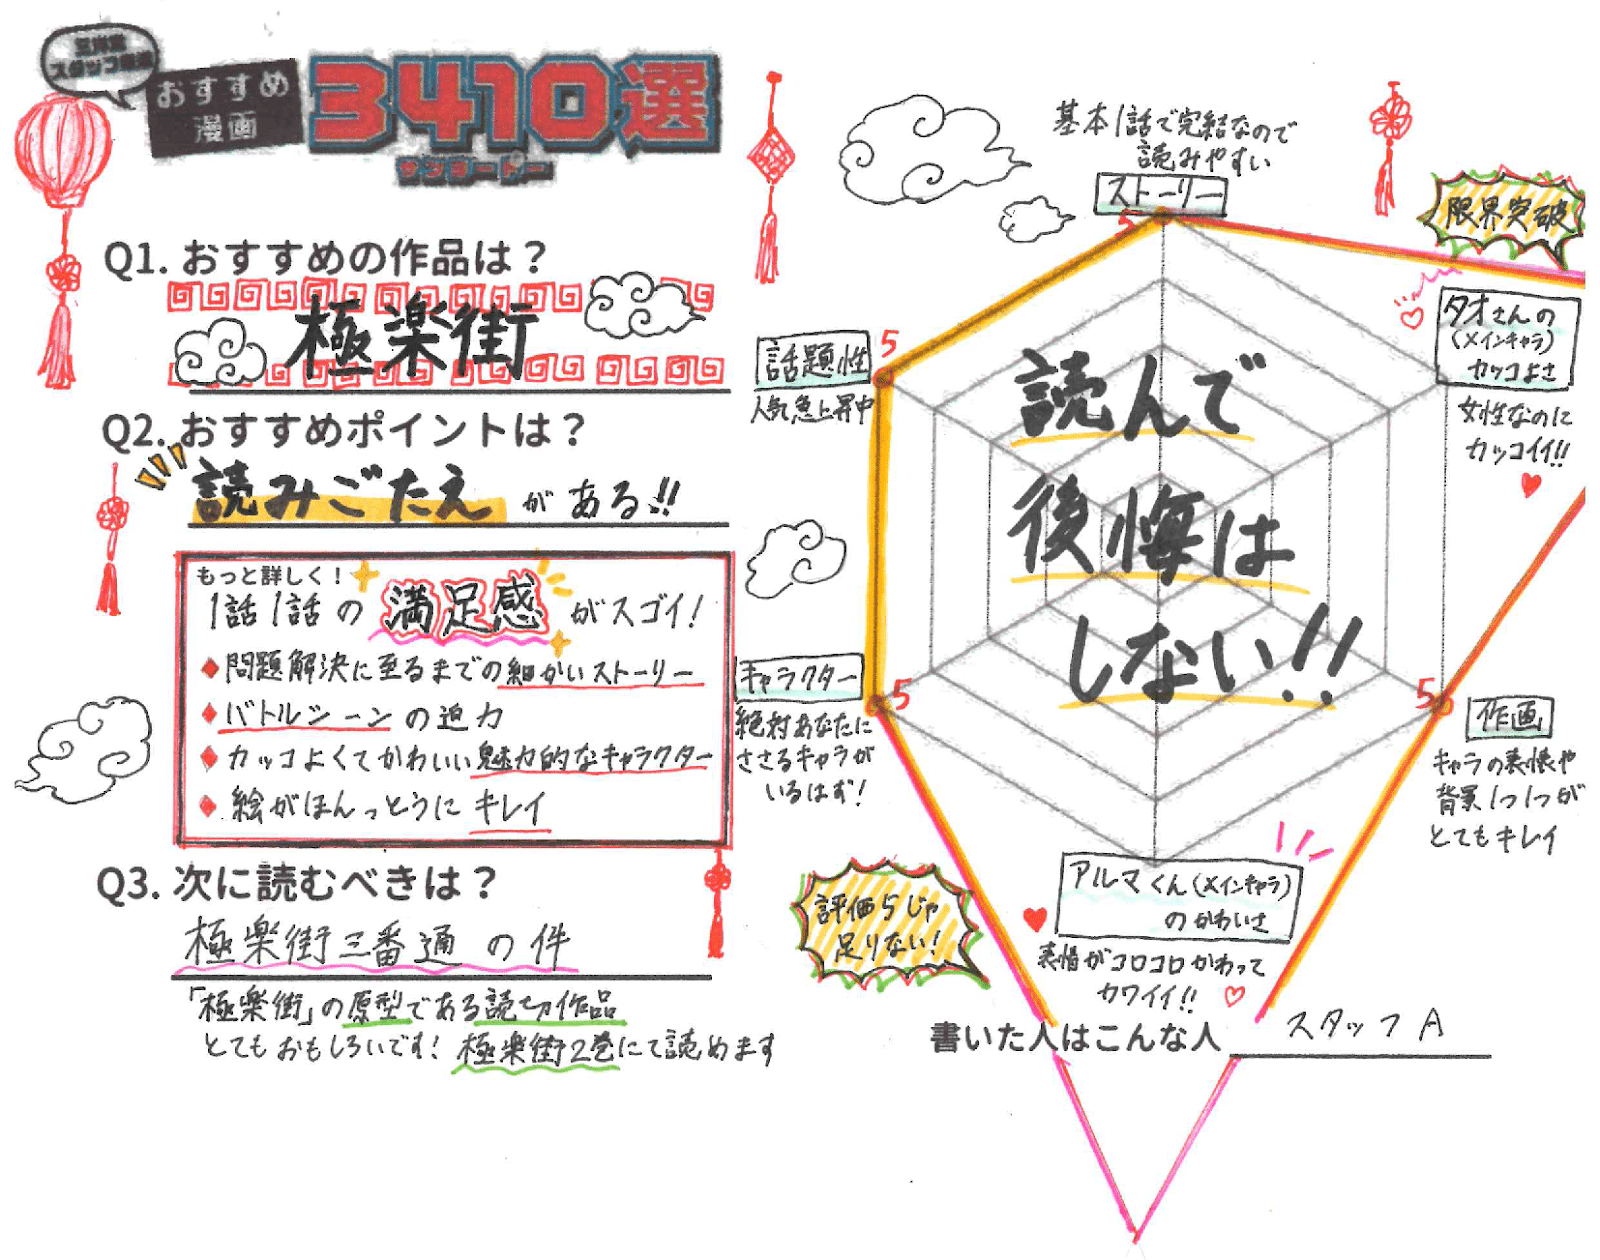 三洋堂
スタッフ厳選
おすすめ
漫画
3410選
サンヨードー
Q1. おすすめの作品は？
極楽街
Q2. おすすめポイントは？
読みごたえがある!!
もっと詳しく！
1話1話の満足感がスゴイ！
問題解決に至るまでの細かいストーリー
バトルシーンの迫力
カッコよくてかわいい魅力的なキャラクター
絵がほんっとうにキレイ
Q3. 次に読むべきは？
極楽街三番通の件
「極楽街」の原型である読切作品
とてもおもしろいです！極楽街2巻にて読めます
基本1話で完結なので
読みやすい
ストーリー
5
限界突破
タオさんの
(メインキャラ)
カッコよさ
女性なのに
カッコイイ!!
5
話題性
人気急上昇中
読んで
後悔は
しない!!
キャラクター
5
絶対あなたに
ささるキャラが
いるはず！
5
作画
キャラの表情や
背景1つ1つが
とてもキレイ
評価5じゃ
足りない！
アルマくん(メインキャラ)
のかわいさ
表情がコロコロかわって
カワイイ!!
書いた人はこんな人
スタッフA